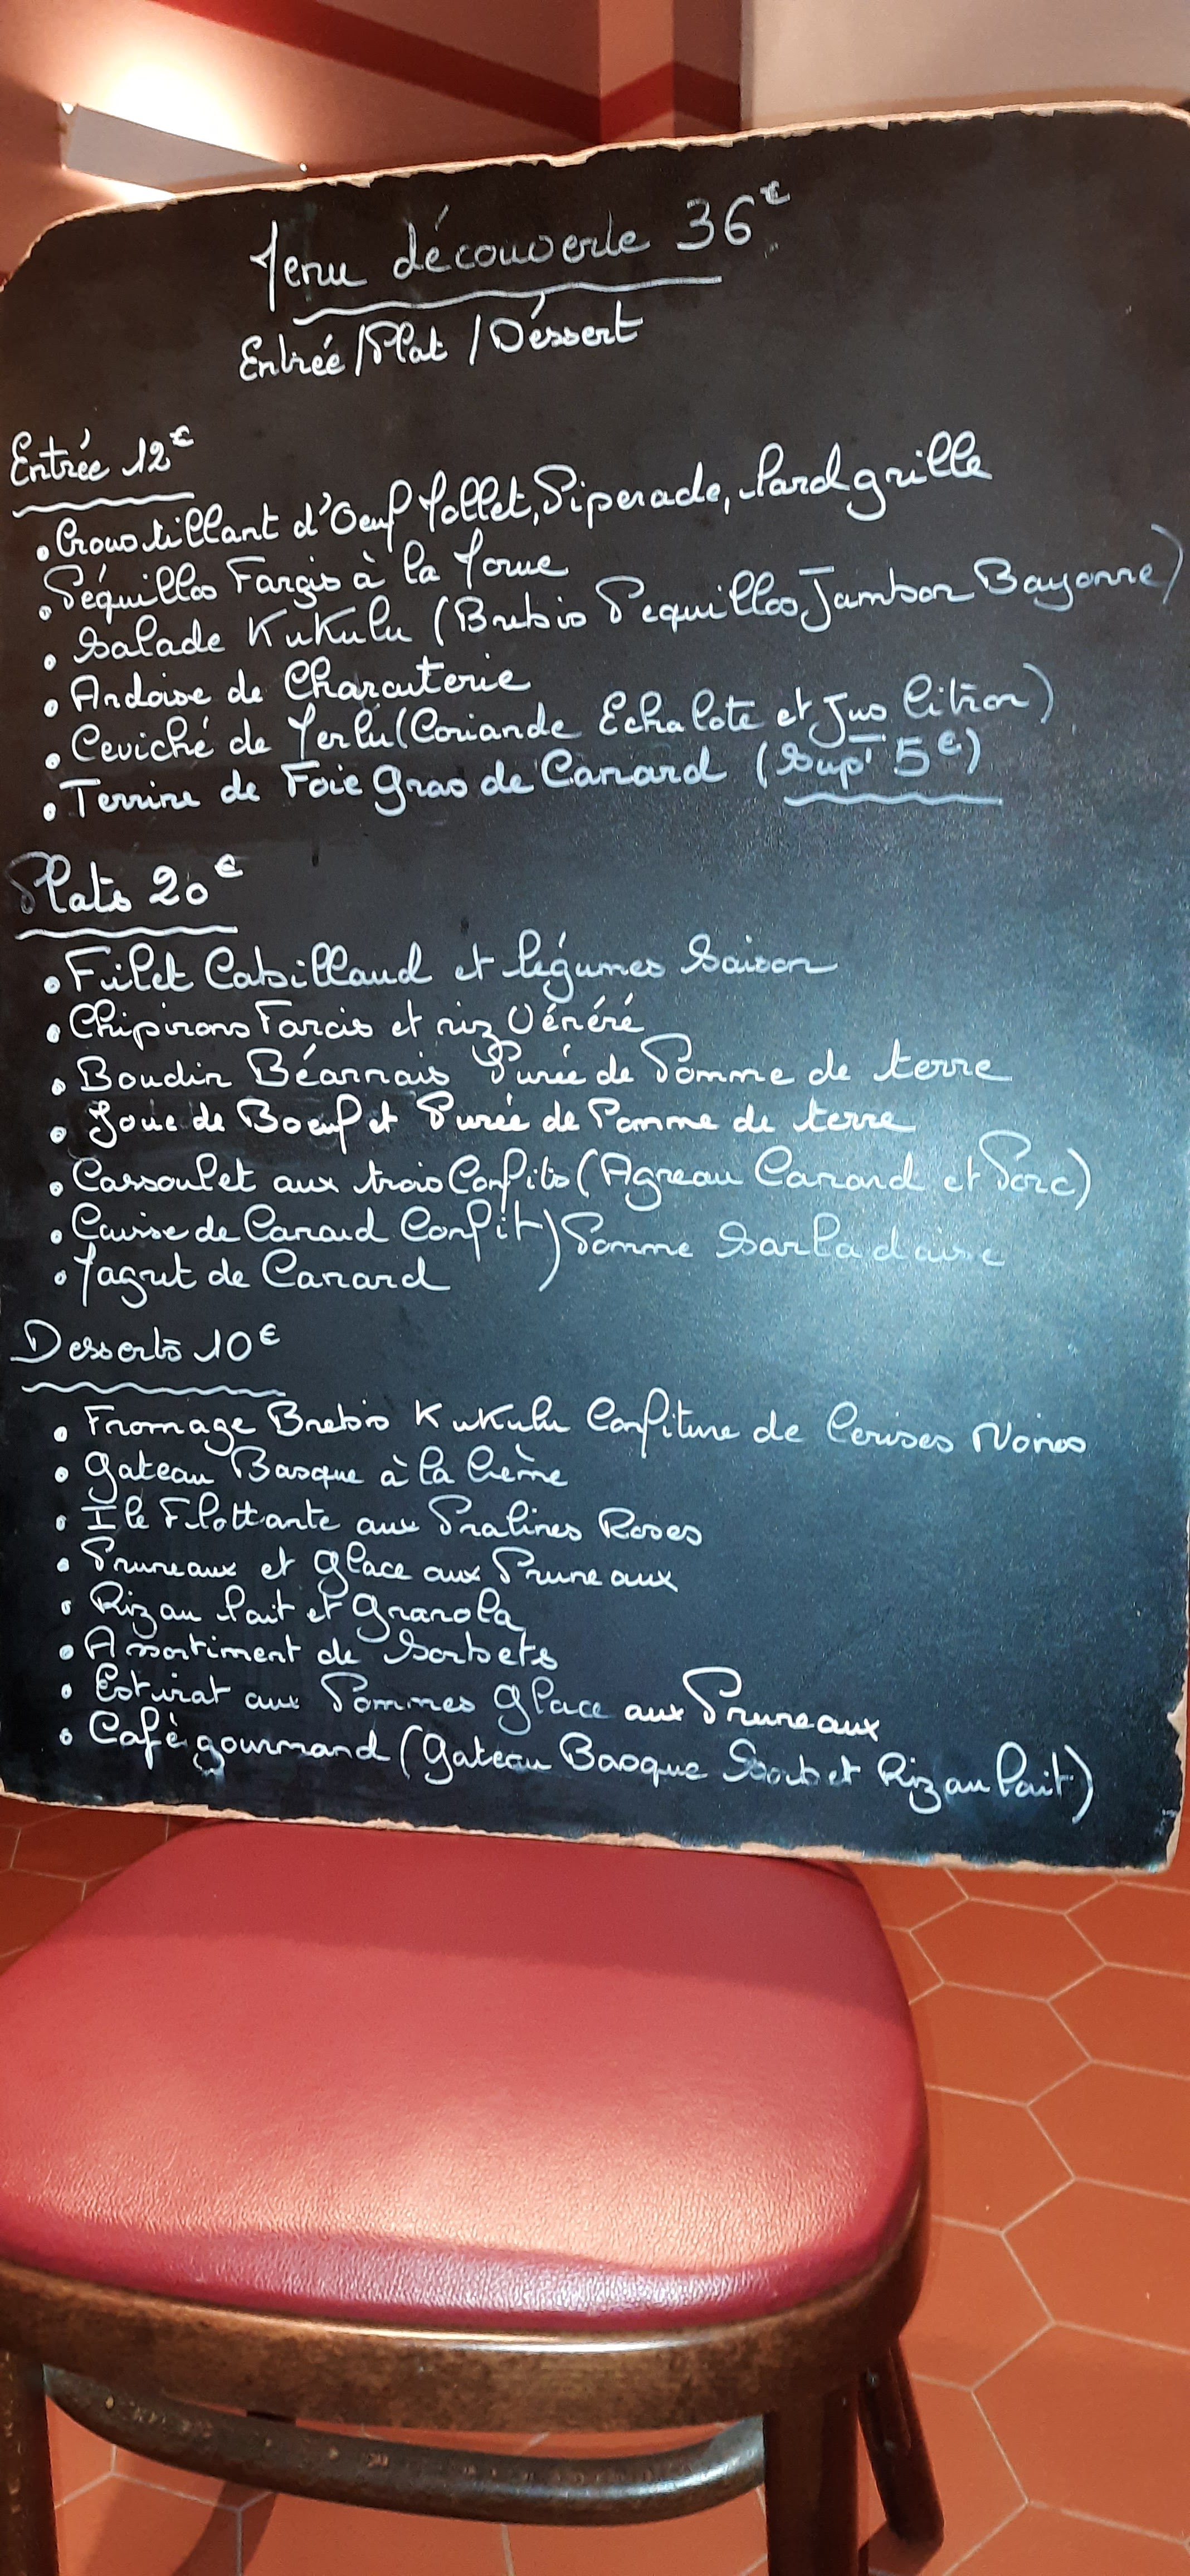 Menu découverte 36€
Entrée/Plat/Déssert
Entrée 12€
• Croustillant d'Oeuf Mollet, Piperade, Lard grille
• Péquillos Fargis à la Morue
• Salade Kukulu (Brebis Pequillos Jambon Bayonne)
• Ardoise de Charcuterie
• Ceviché de Merlu (Coriande Echalote et Jus Citron)
• Terrine de Foie gras de Canard (Supt 5€)
Plats 20€
• Filet Cabillaud et légumes Saison
• Chipirons Farcis et riz Vénéré
• Boudin Béarnais Purée de Pomme de terre
• Joue de Boeuf et Purée de Pomme de terre
• Cassoulet aux trois Confits (Agneau Canard et Porc)
• Cuisse de Canard Confit) Pomme Sarladaise
• Magret de Canard
Desserts 10€
• Fromage Brebis Kukulu Confiture de Cerises Noires
• Gateau Basque à la Crème
• Ile Flottante aux Pralines Roses
• Pruneaux et glace aux Pruneaux
• Riz au lait et granola
• Assortiment de Sorbets
• Esturat aux Pommes glace aux Pruneaux
• Cafè gourmand (Gateau Basque Sorbet Riz au lait)